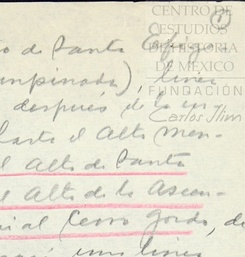 CENTRO DE
ESTUDIOS
DE HISTORIA
DE MÉXICO
FUNDACIÓN
Carlos Slim
1
o de Santa Efige-
mpinada), línea
después de la in-
hasta el Alto Men-
l Alto de Santa
l Alto de la Ascen-
al Cerro gordo, de
una línea